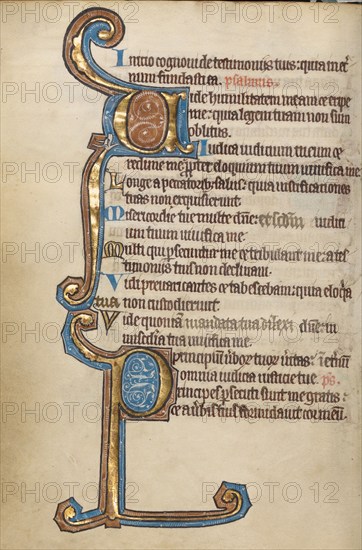 Initio cognoui de testimoniis tuis: quia in et
num fundasti ea. psalmus.
Vide humilitatem meam et eripe
me: quia legem tuam non sum
oblitus.
Iudica iudicium meum et
redime me: propter eloquium tuum uiuifica me.
Longe a peccatoribus salus: quia iustificationes
tuas non exquisierunt.
Misericordie tue multe domine: et secundum iudici
um tuum uiuifica me.
Multi qui persecuntur me et tribulant me: a tes
timoniis tuis non declinaui.
Vidi preuaricantes et tabescebam: quia eloquia
tua non custodierunt.
Vide quoniam mandata tua dilexi domine: in
misericordia tua uiuifica me.
Principium uerborum tuorum ueritas: in eternum
omnia iudicia iusticie tue. ps.
Principes persecuti sunt me gratis:
et a uerbis tuis formidauit cor meum.
PHOTO12